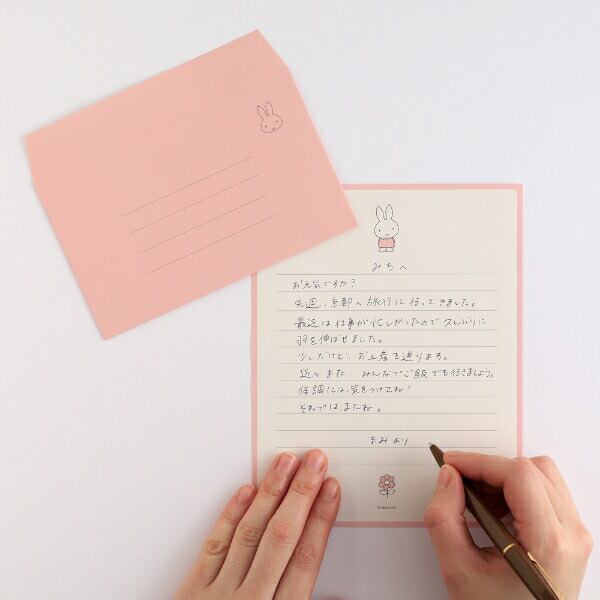 みちへ
お元気ですか？
先週、京都へ旅行に行ってきました。
最近は仕事が忙しかったので久しぶりに
羽を伸ばせました。
少しだけど、お土産を送ります。
近々また、みんなでご飯でも行きましょう。
体調には、気をつけてね！
それでは、またね。
まみより